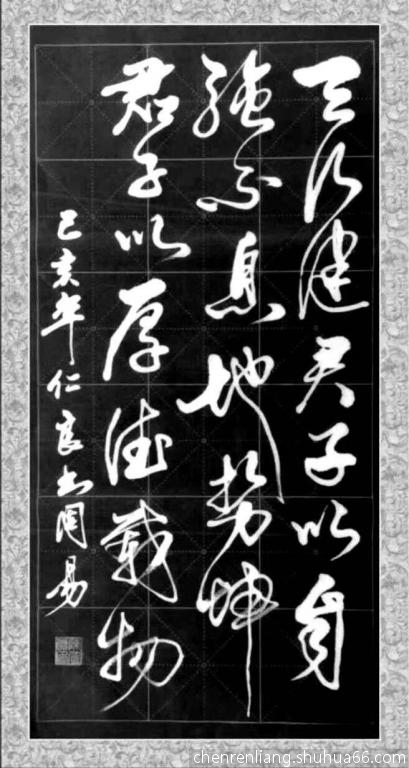 天行健君子以自
强不息地势坤
君子以厚德载物
己亥年仁良书周易
chenrenliang.shuhua66.com